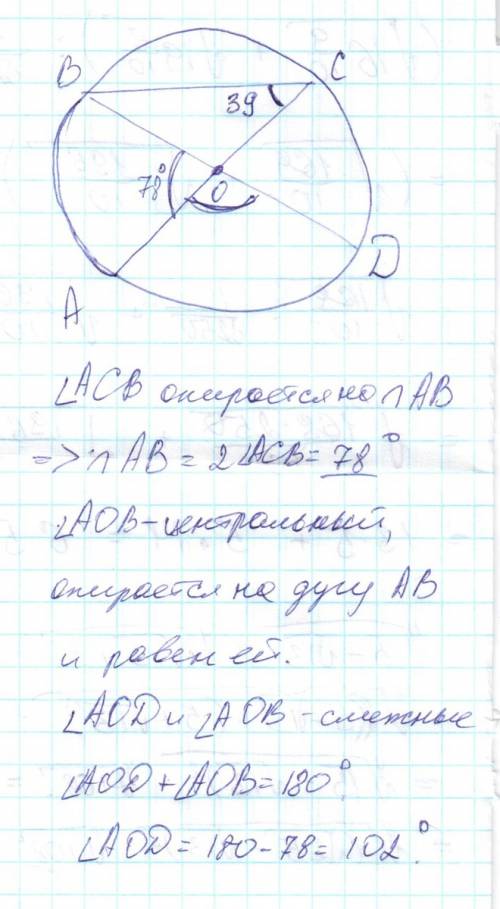 B
C
39
78°
O
A
D
∠ACB опирается на ∩AB
=> ∩AB = 2∠ACB = 78°
∠AOB - центральный,
опирается на дугу AB
и равен ей.
∠AOD и ∠AOB - смежные
∠AOD + ∠AOB = 180°.
∠AOD = 180 - 78 = 102°.